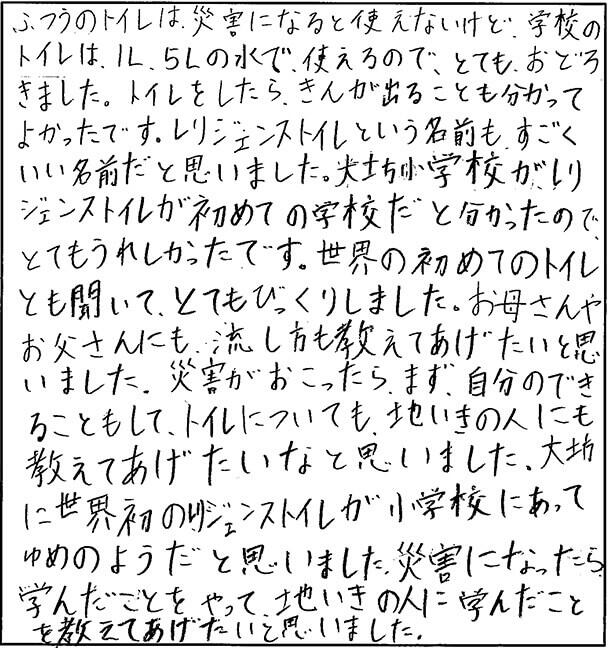 ふつうのトイレは、災害になると使えないけど、学校の
トイレは、1L、5Lの水で、使えるので、とても、おどろ
きました。トイレをしたら、きんが出ることも分かって
よかったです。レリジェンストイレという名前も、すごく
いい名前だと思いました。大坊小学校がレリ
ジェンストイレが初めての学校だと分かったので、
とてもうれしかったです。世界の初めてのトイレ
とも聞いて、とてもびっくりしました。お母さんや
お父さんにも、流し方も教えてあげたいと思
いました。災害がおこったら、まず、自分のでき
ることもして、トイレについても、地いきの人にも
教えてあげたいなと思いました。大坊
に世界初のリジェンストイレが小学校にあって
ゆめのようだと思いました。災害になったら、
学んだことをやって、地いきの人に学んだこと
を教えてあげたいと思いました。